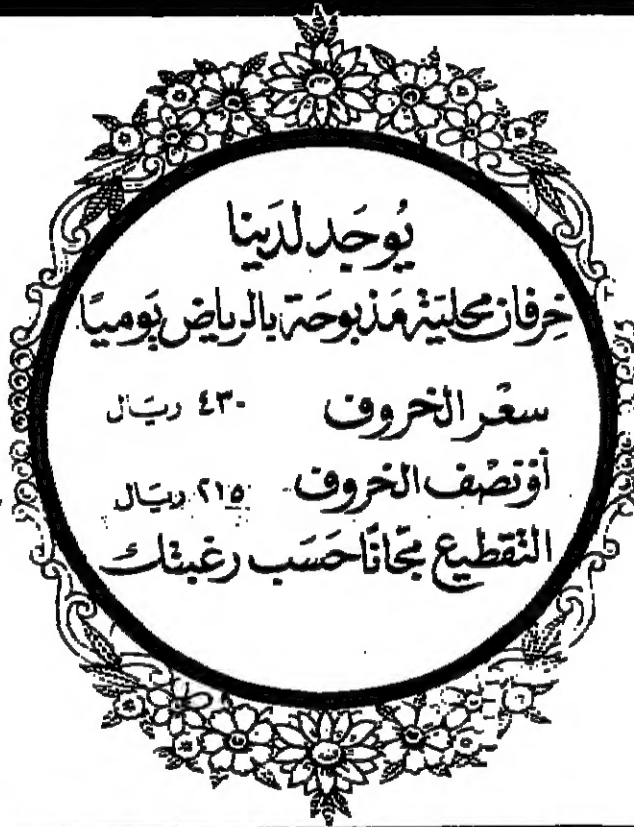 يُوجَد لدَينا
خِرفان محليّة مَذبوحَة بالرياض يَوميًا
سعْر الخروف ٤٣٠ ريَال
أوْنصْف الخروف ٢١٥ ريَال
التقطيع مجّانًا حَسَب رغبتك